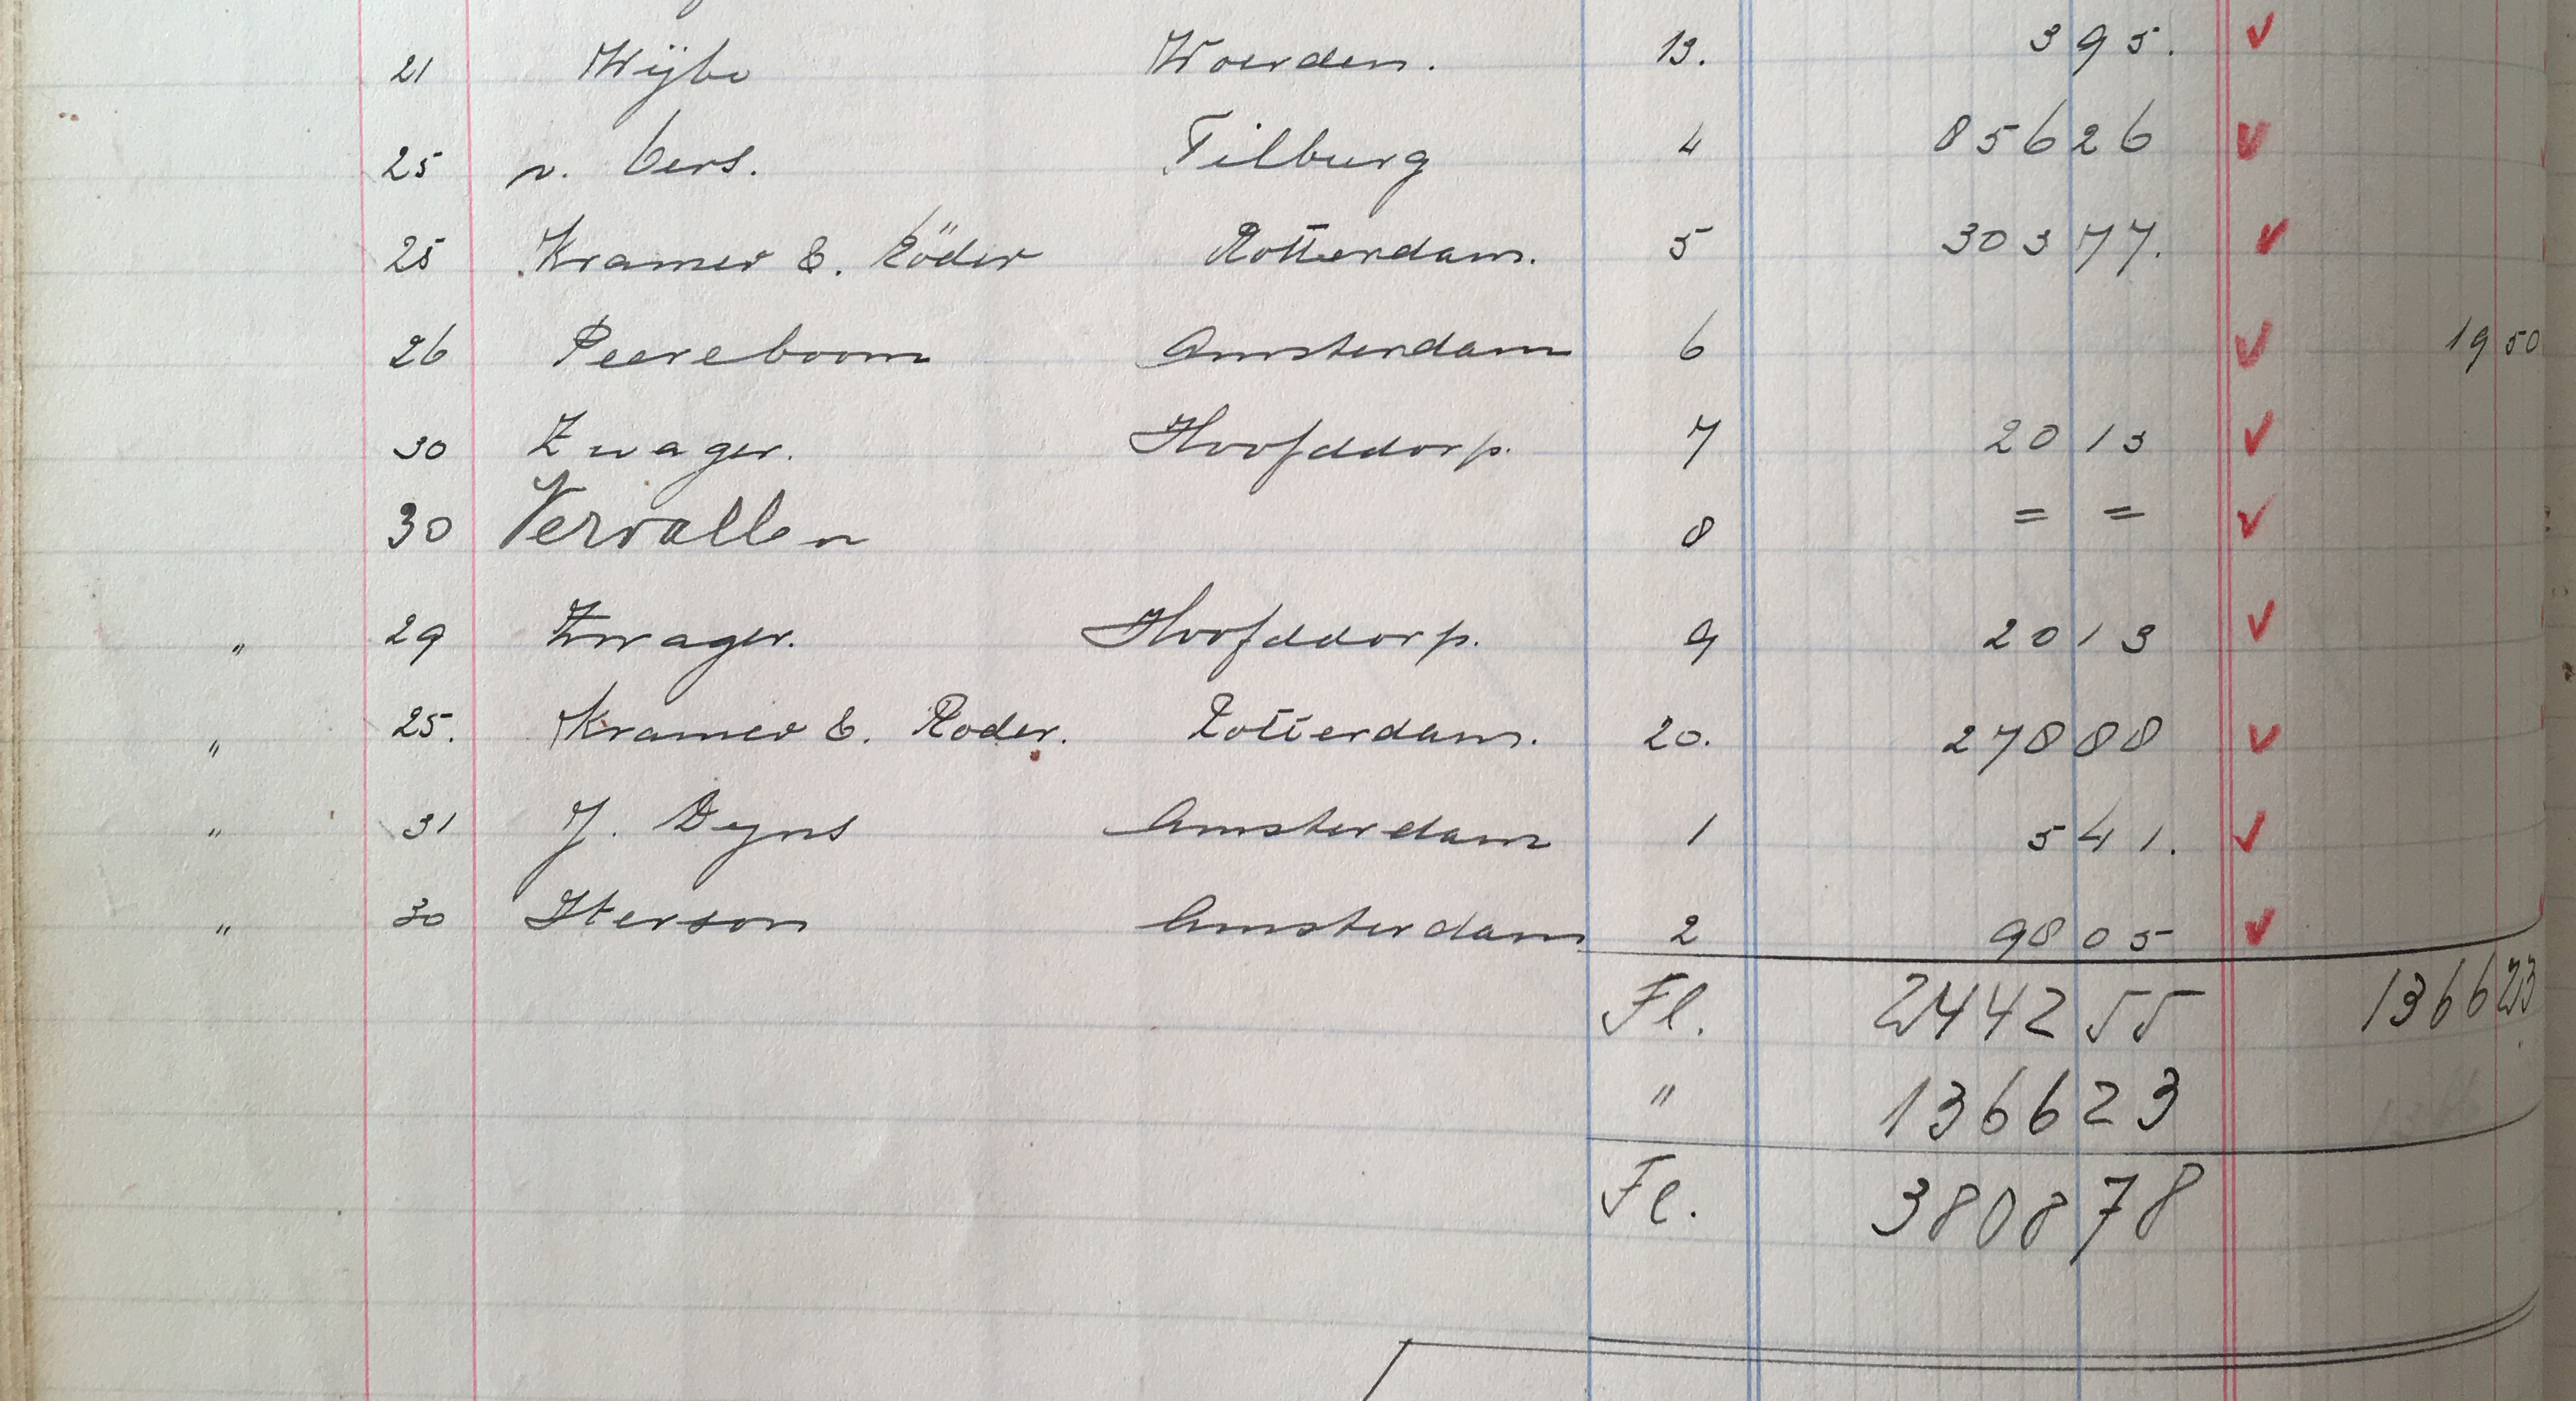 21 Wijbe Woerden. 13. 3 95. ✓
25 v. Cers. Tilburg 4 856 26 ✓
25 Kramer & Röder Rotterdam. 5 303 77. ✓
26 Peereboom Amsterdam 6 ✓ 19 50
30 Zwager. Hoofddorp. 7 20 13 ✓
30 Vervallen 8 = = ✓
" 29 Zwager. Hoofddorp. 9 20 13 ✓
" 25. Kramer & Roder. Rotterdam. 20. 278 88 ✓
" 31 J. Deyns Amsterdam 1 5 41. ✓
" 30 Iterson Amsterdam 2 98 05 ✓
Fl. 2442 55 1366 23
" 1366 23
Fl. 3808 78